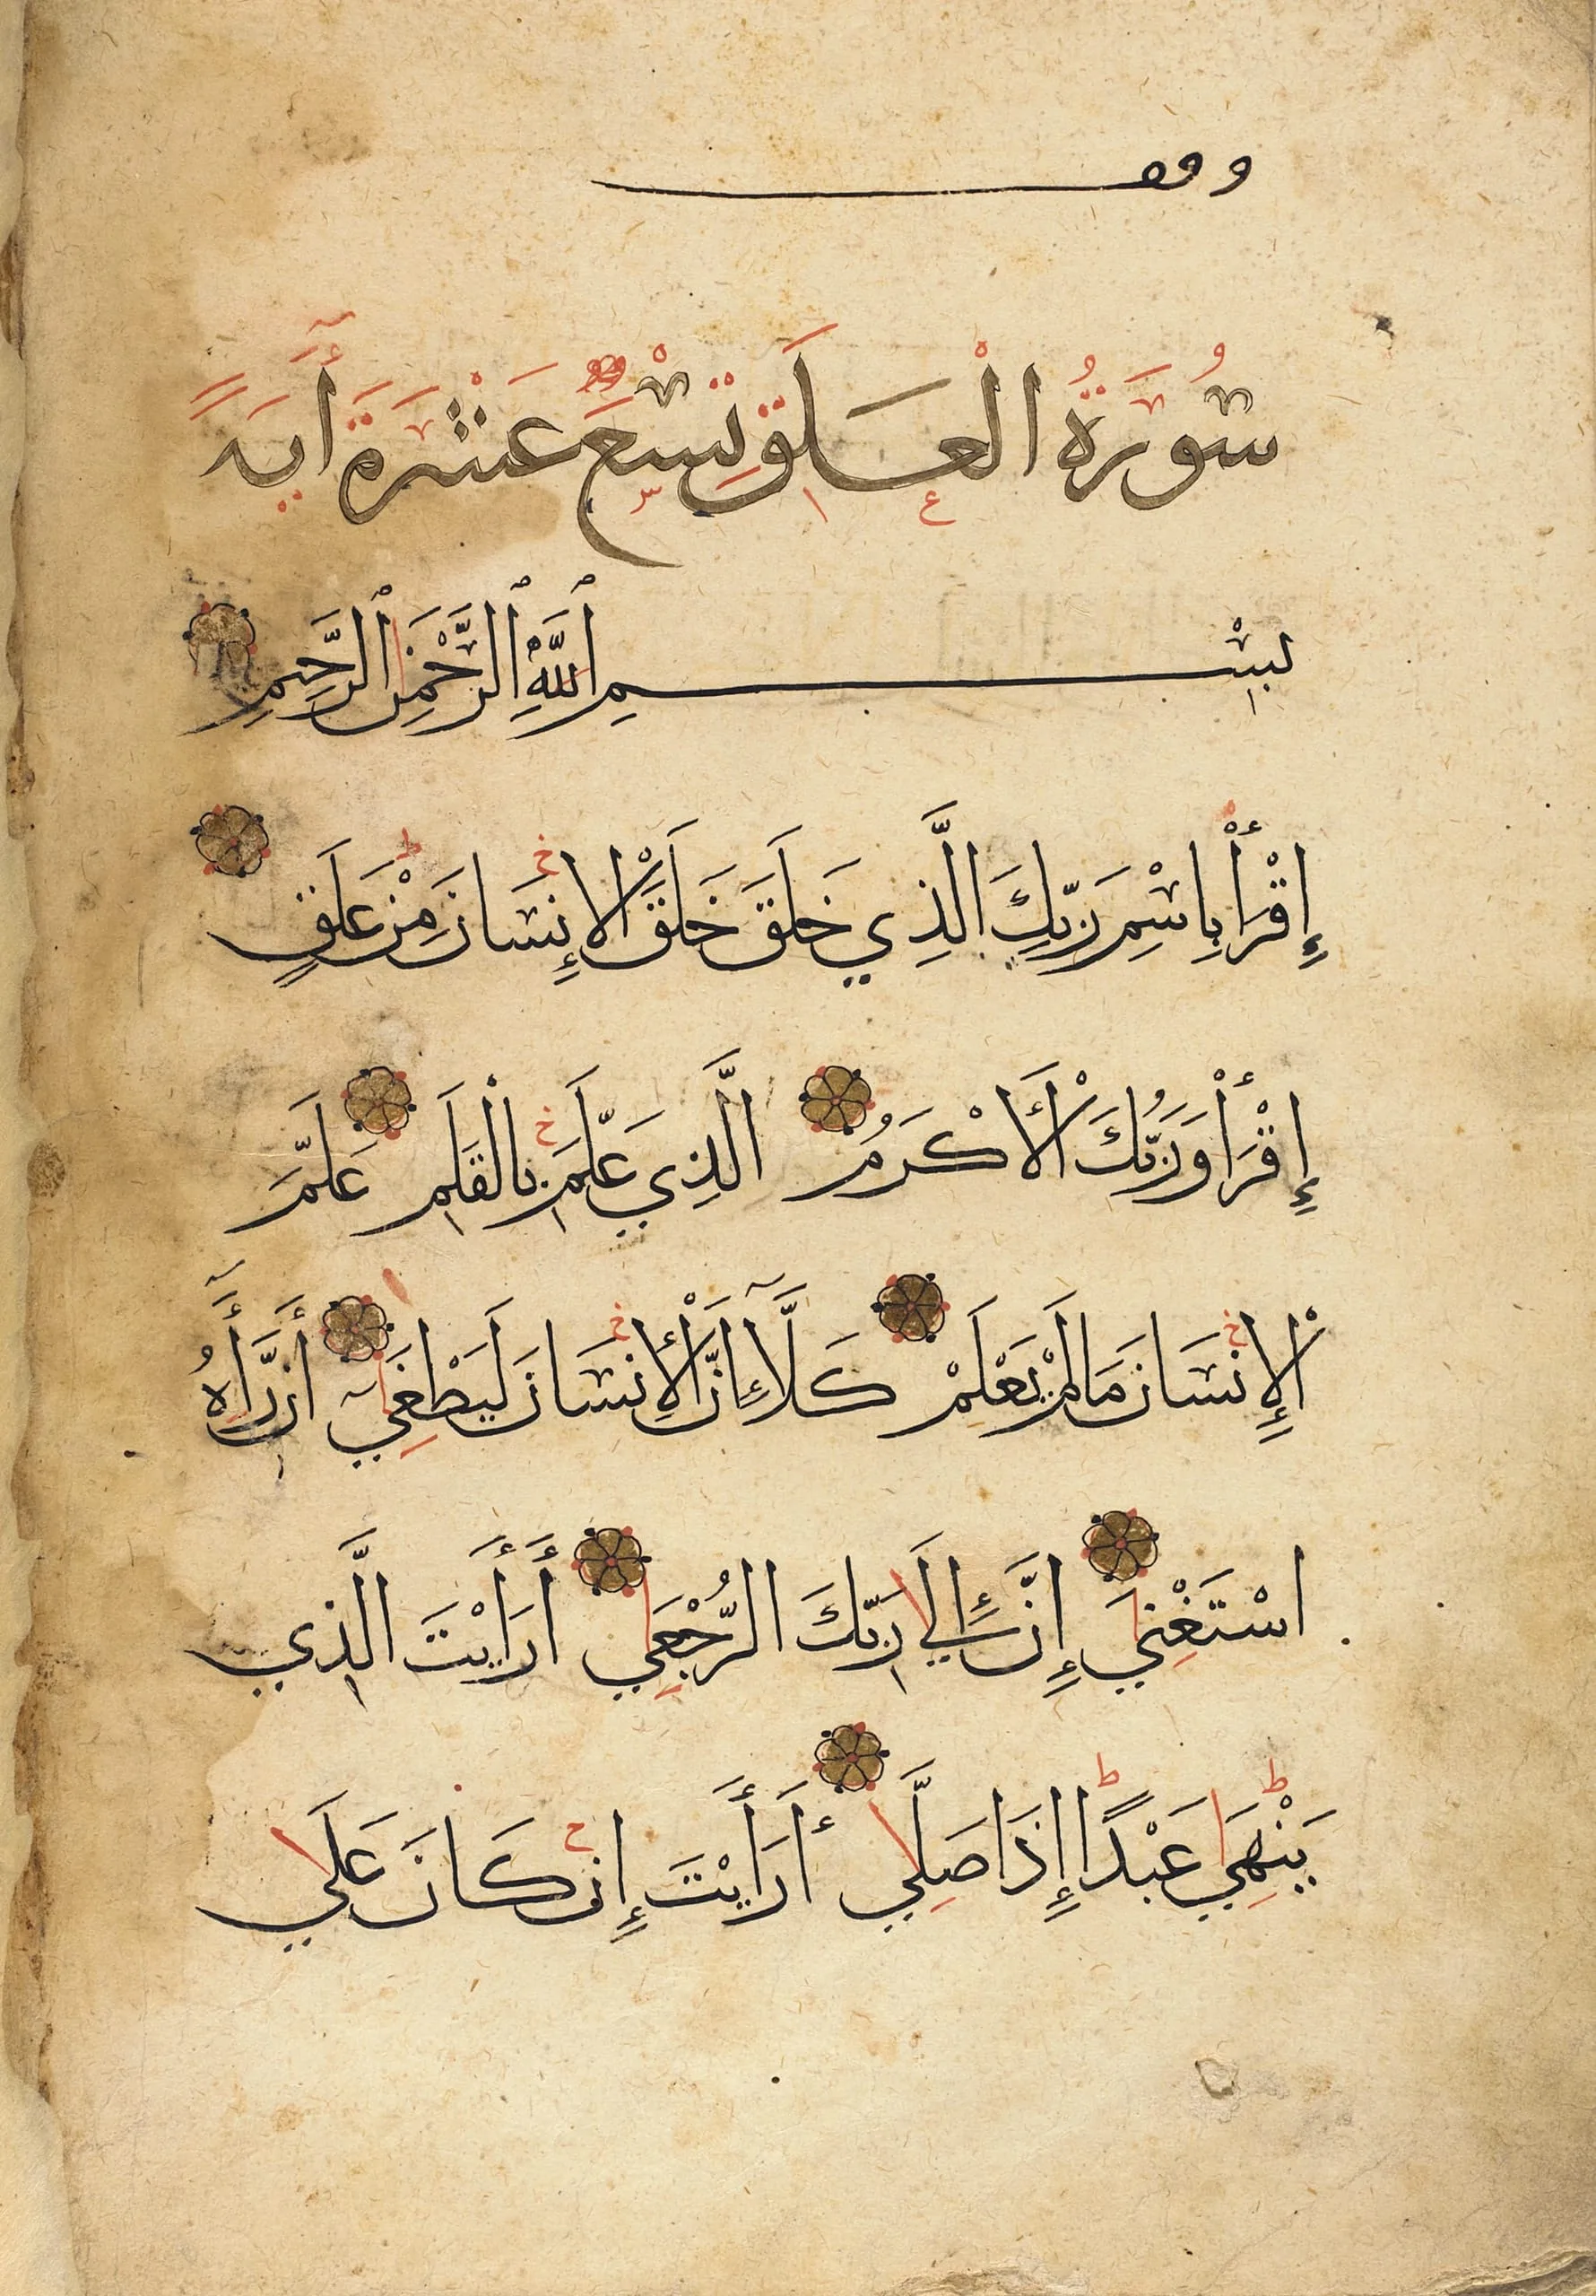 وقف
سُورَةُ الْعَلَقِ تِسْعَ عَشَرَةَ أٓيَةً
بِسْمِ ٱللَّهِ ٱلرَّحْمَنِ ٱلرَّحِيمِ
إِقْرَأْ بِاسْمِ رَبِّكَ الَّذِي خَلَقَ خَلَقَ الْإِنسَانَ مِنْ عَلَقٍ
إِقْرَأْ وَرَبُّكَ الْأَكْرَمُ الَّذِي عَلَّمَ بِالْقَلَمِ عَلَّمَ
الْإِنسَانَ مَا لَمْ يَعْلَمْ كَلَّآ إِنَّ الْإِنسَانَ لَيَطْغِىٓ أَن رَّأَىٰهُ
اسْتَغْنِي إِنَّ إِلَي رَبِّكَ الرُّجْعِي أَرَأَيْتَ الَّذِي
يَنْهِي عَبْدًا إِذَا صَلِّي أَرَأَيْتَ إِن كَانَ عَلَي